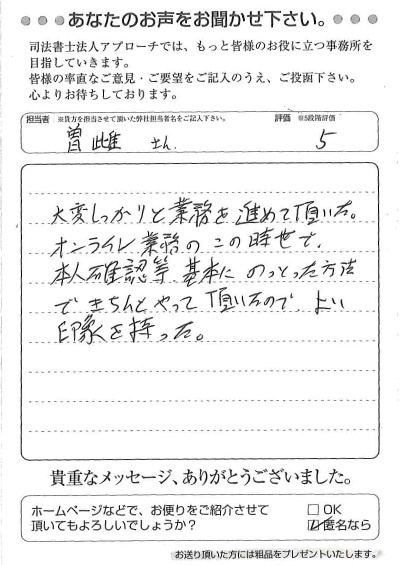 ●●●あなたのお声をお聞かせ下さい。●●●
司法書士法人アプローチでは、もっと皆様のお役に立つ事務所を
目指していきます。
皆様の率直なご意見・ご要望をご記入のうえ、ご投函下さい。
心よりお待ちしております。
担当者 ※貴方を担当させて頂いた弊社担当者名をご記入下さい。 評価 ※5段階評価
曽 雌 さん 5
大変しっかりと業務を進めて頂いた。
オンライン業務の この時世で、
本人確認等、基本に のっとった方法
で きちんと やって 頂いたので、よい
印象を持った。
貴重なメッセージ、ありがとうございました。
ホームページなどで、お便りをご紹介させて □ OK
頂いてもよろしいでしょうか? ☑ 匿名なら
お送り頂いた方には粗品をプレゼントいたします。